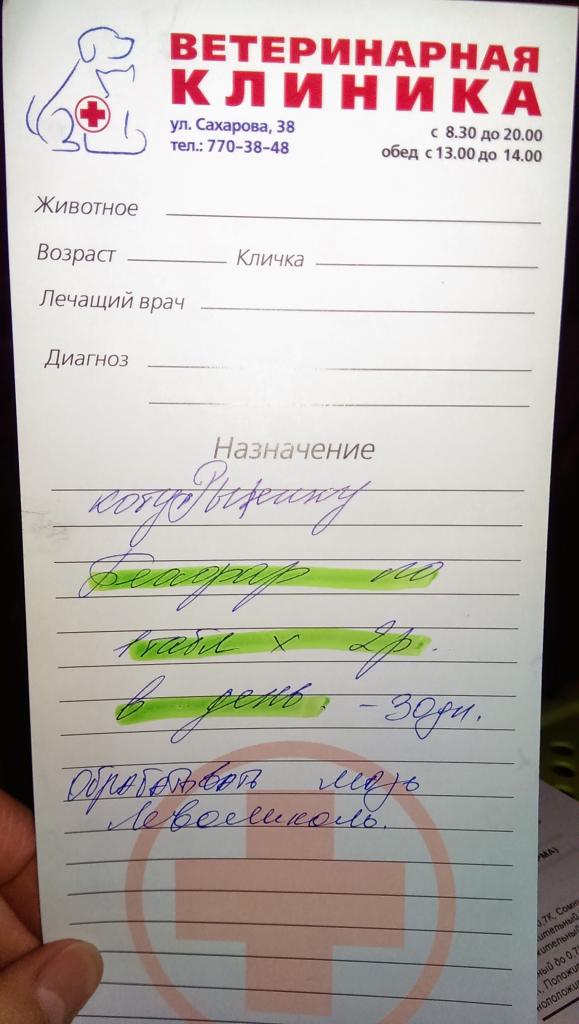 ВЕТЕРИНАРНАЯ
КЛИНИКА
ул. Сахарова, 38
тел.: 770-38-48
с 8.30 до 20.00
обед с 13.00 до 14.00
Животное
Возраст Кличка
Лечащий врач
Диагноз
Назначение
коту Рыжику
Беафар по
1 табл х 2р.
в день. - 30 дн.
Обрабатывать мазь
Левомиколь.